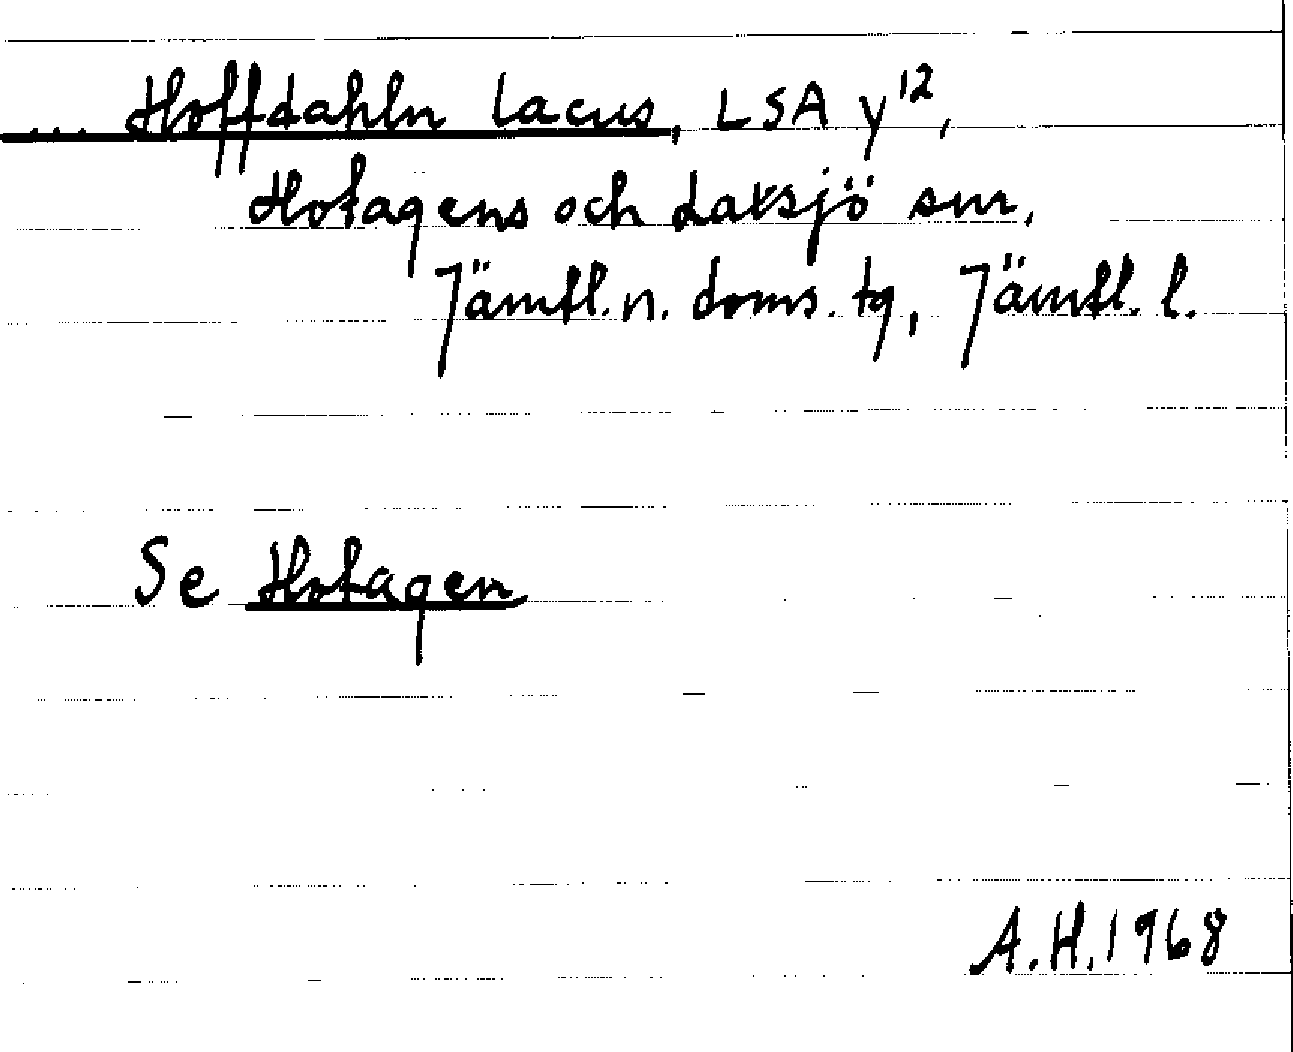 ... Hoffdahln lacus, LSA y¹²,
Hotagens och Laxsjö snr,
Jämtl. n. doms. tg, Jämtl. l.
Se Hotagen
A.H. 1968